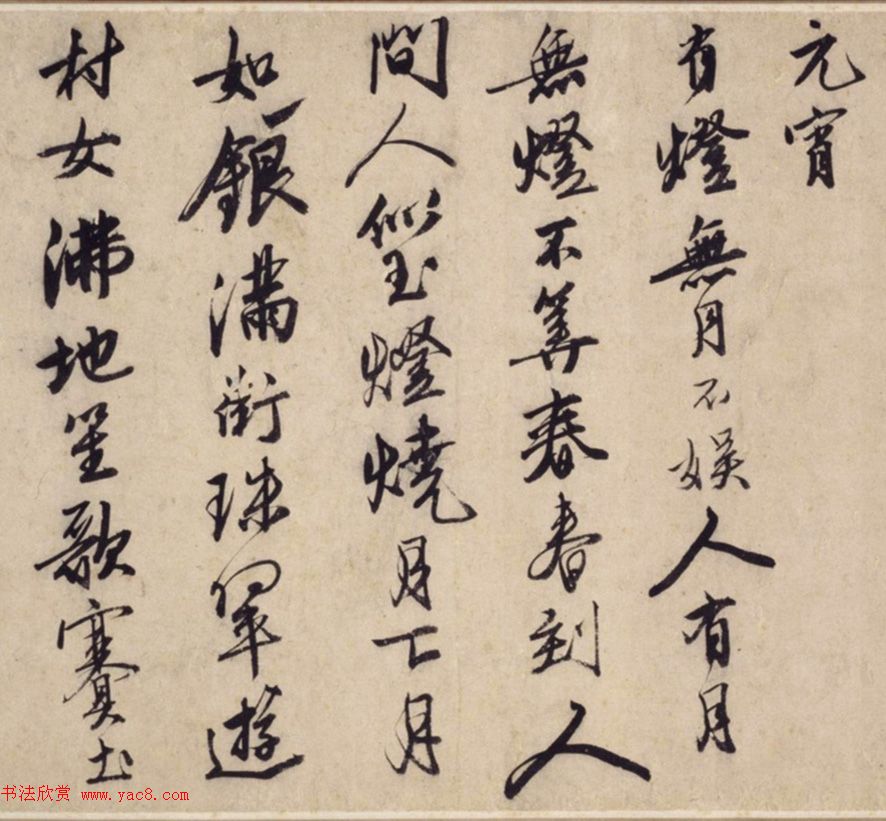 元宵
有燈無月不娛人有月
無燈不筭春春到人
間人似玉燈燒月下月
如銀滿街珠翠遊
村女沸地笙歌賽土
书法欣赏 www.yac8.com